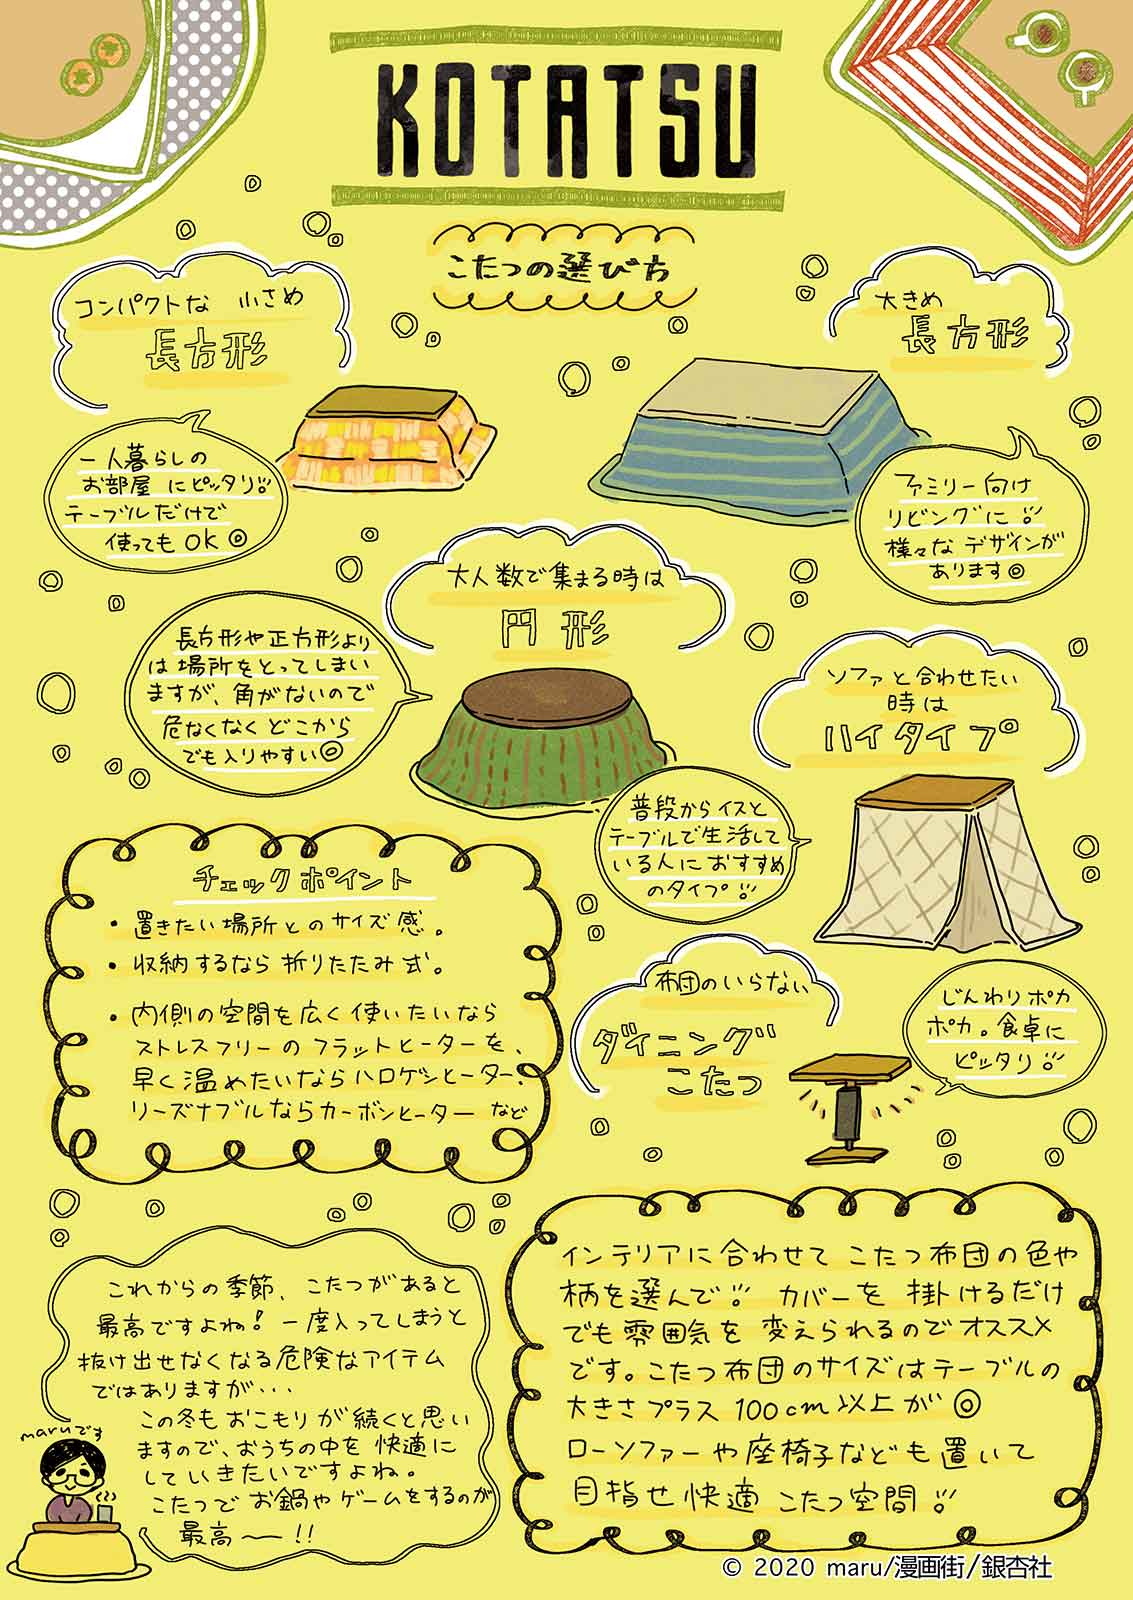 KOTATSU
こたつの選び方
コンパクトな 小さめ
長方形
一人暮らしの
お部屋にピッタリ!!
テーブルだけで
使ってもOK◎
大きめ
長方形
ファミリー向け
リビングに!!
様々なデザインが
あります◎
大人数で集まる時は
円形
長方形や正方形より
は場所をとってしまい
ますが、角がないので
危なくなくどこから
でも入りやすい◎
ソファと合わせたい
時は
ハイタイプ
普段からイスと
テーブルで生活して
いる人におすすめ
のタイプ!!
チェックポイント
・置きたい場所とのサイズ感。
・収納するなら折りたたみ式。
・内側の空間を広く使いたいなら
ストレスフリーのフラットヒーターを、
早く温めたいならハロゲンヒーター、
リーズナブルならカーボンヒーター など
布団のいらない
ダイニング
こたつ
じんわりポカ
ポカ。食卓に
ピッタリ!!
これからの季節、こたつがあると
最高ですよね! 一度入ってしまうと
抜け出せなくなる危険なアイテム
ではありますが・・・
この冬もおこもりが続くと思い
ますので、おうちの中を快適に
していきたいですよね。
こたつでお鍋やゲームをするのが
最高〜!!
maruです
インテリアに合わせてこたつ布団の色や
柄を選んで!! カバーを掛けるだけ
でも雰囲気を変えられるのでオススメ
です。こたつ布団のサイズはテーブルの
大きさプラス100cm以上が◎
ローソファーや座椅子なども置いて
目指せ快適こたつ空間!!
© 2020 maru/漫画街/銀杏社